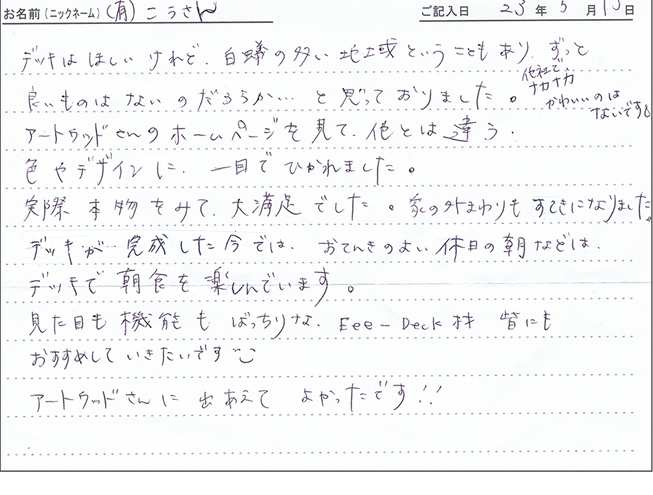 お名前(ニックネーム) (有)こうさん ご記入日 23年5月15日
デッキはほしいけれど、白蟻の多い地域ということもあり、ずっと
良いものはないのだろうか…と思っておりました。
他社で、ナカナカかわいいのはないです
アートウッドさんのホームページを見て、他とは違う、
色やデザインに、一目でひかれました。
実際本物をみて、大満足でした。家の外まわりもすてきになりました。
デッキが完成した今では、おてんきのよい休日の朝などは、
デッキで朝食を楽しんでいます。
見た目も機能もばっちりな、Eee-Deck材 皆にも
おすすめしていきたいです
アートウッドさんに出あえてよかったです!!